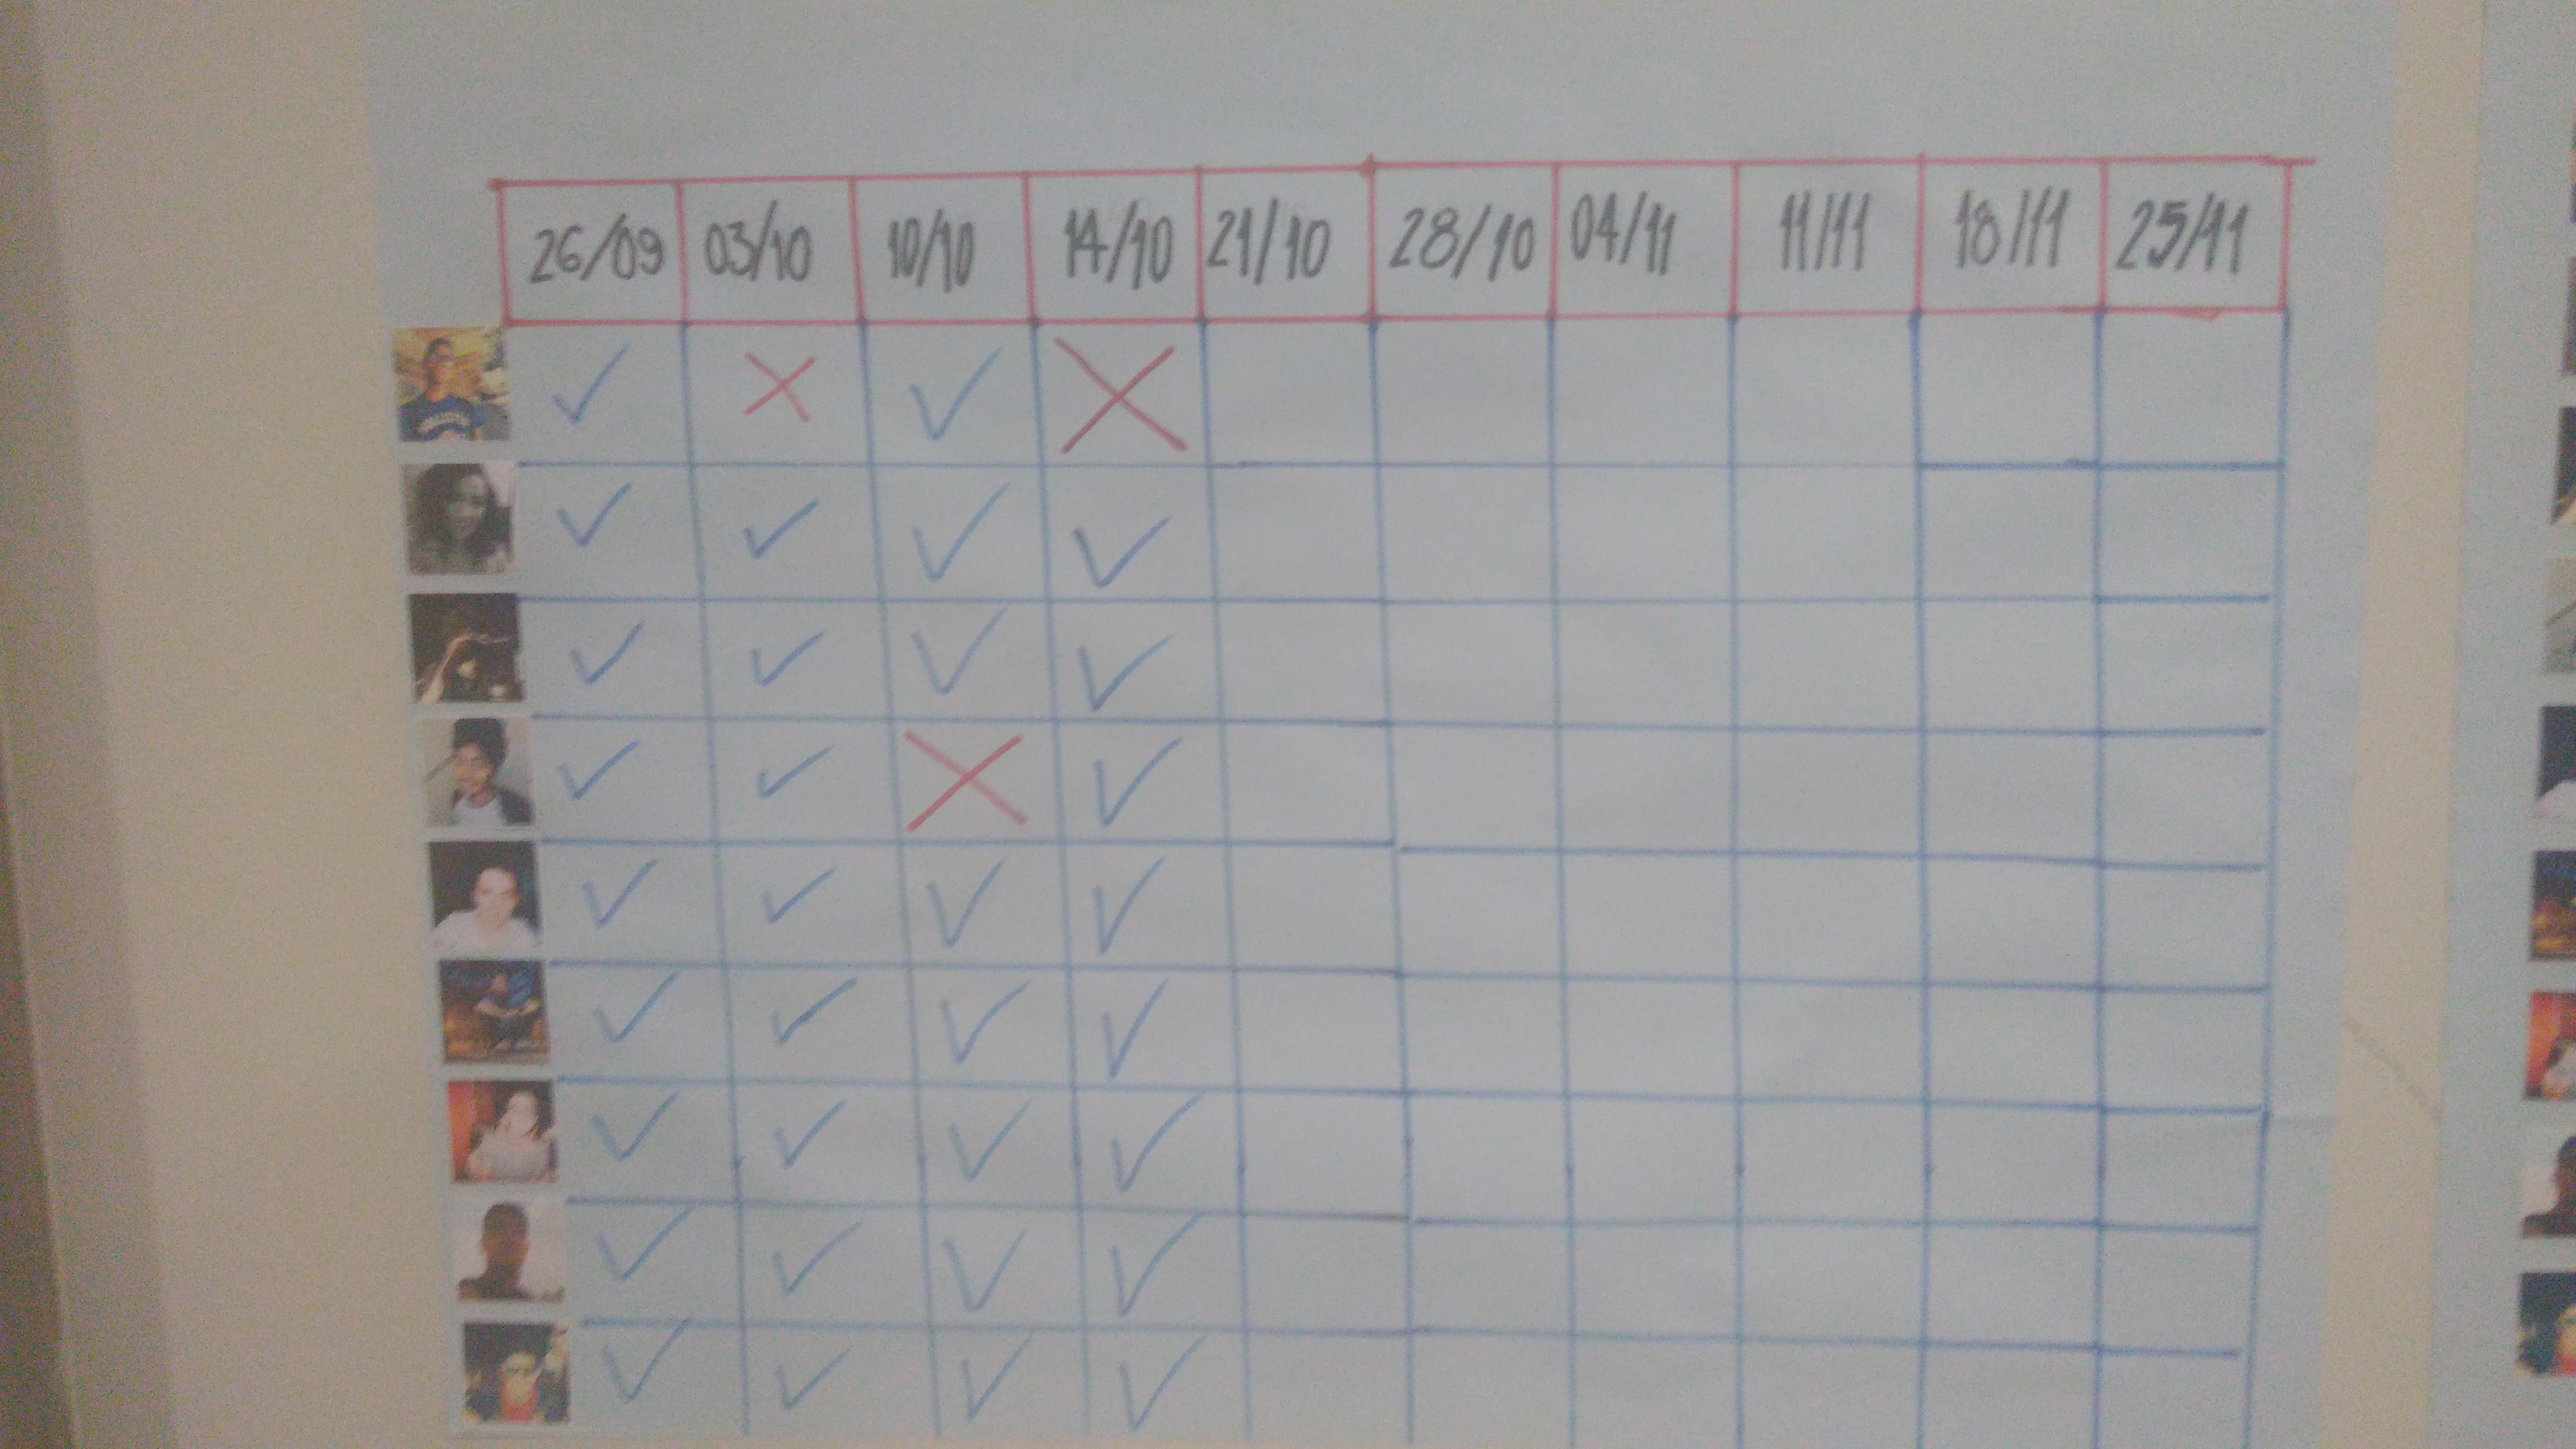 26/09 03/10 10/10 14/10 21/10 28/10 04/11 11/11 18/11 25/11